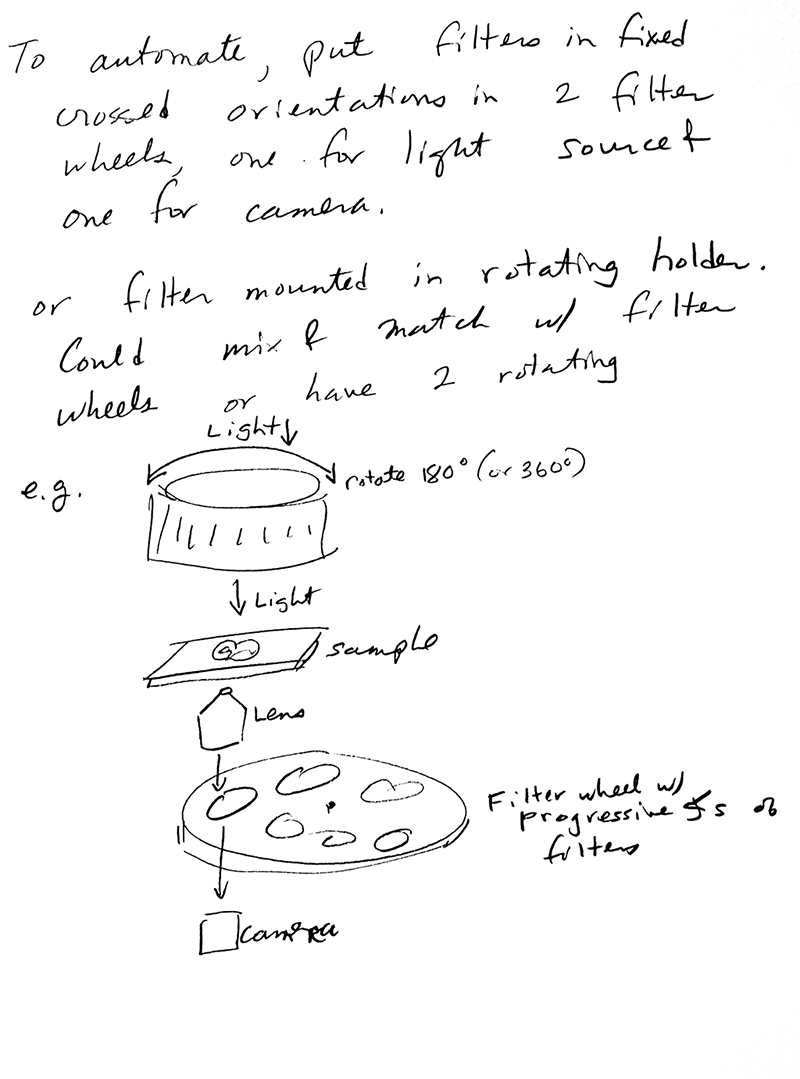 To automate, put filters in fixed
crossed orientations in 2 filter
wheels, one for light source &
one for camera.
or filter mounted in rotating holder.
Could mix & match w/ filter
wheels or have 2 rotating
Light
e.g.
rotate 180° (or 360°)
Light
sample
Lens
Filter wheel w/
progressive ∡s of
filters
Camera